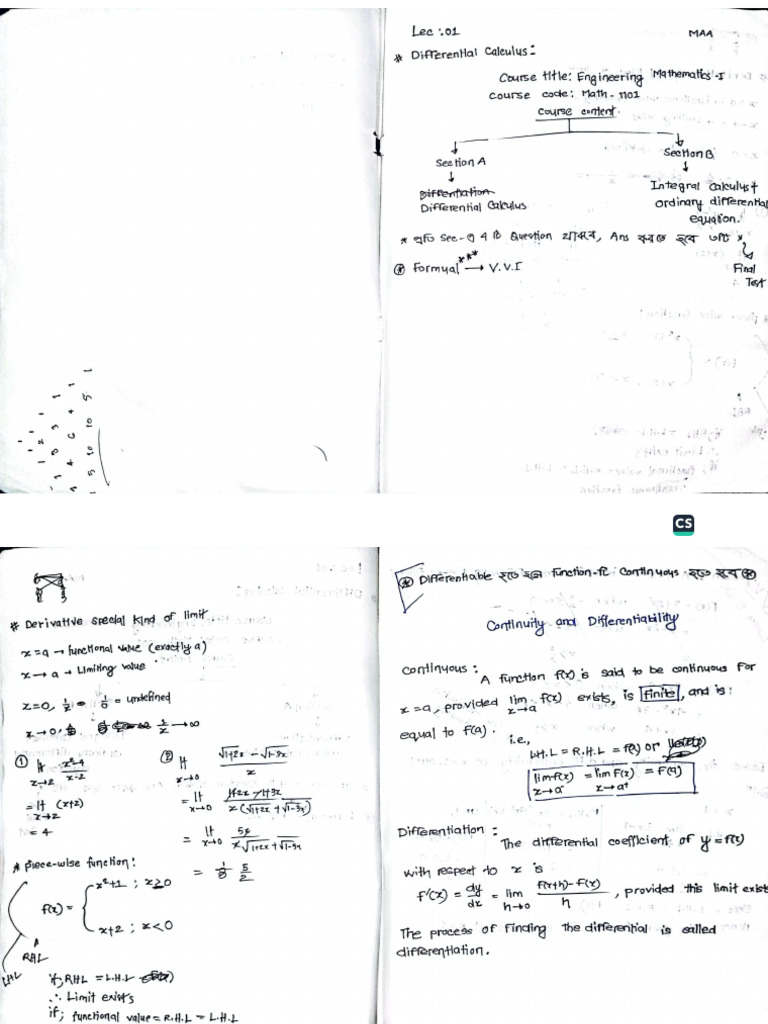 Lec :01
MAA
* Differential Calculus :
Course title: Engineering Mathematics-I
Course code: Math-1101
Course content.
Section A
Section B
Differentiation
Differential Calculus
Integral Calculus +
ordinary differential
equation.
* প্রতি Sec-এ 4 টি Question থাকবে, Ans করতে হবে ৩টি *
Final
Test
* Formual*** → V.V.I
1
1 1
1 2 1
1 3 3 1
1 4 6 4 1
1 5 10 10 5 1
CS
* Derivative special kind of limit.
x = a → functional value (exactly a)
x → a → Limiting value
x=0, 1/x = 1/0 = undefined
x→0, 1/x → ∞
① lt x→2 x²-4 / x-2
= lt x→2 (x+2)
= 4
② lt x→0 √1+2x - √1-3x / x
= lt x→0 1+2x-1+3x / x(√1+2x + √1-3x)
= lt x→0 5x / x√1+2x + √1-3x
= 5/2
* Piece-wise function:
f(x) = { x²+1 ; x≥0
x+2 ; x<0
RHL
LHL
if, RHL = L.H.L
∴ Limit exists
if; functional value = R.H.L = L.H.L
* Differentiable হতে হলে function-টি Continuous হতে হবে *
Continuity and Differentiability
Continuous : A function f(x) is said to be continuous for
x=a, provided lim x→a f(x) exists, is finite, and is
equal to f(a).
i.e., L.H.L = R.H.L = f(x) or
lim f(x) x→a⁻ = lim f(x) x→a⁺ = f(a)
Differentiation : The differential coefficient of y = f(x)
with respect to x is
f'(x) = dy/dx = lim h→0 f(x+h)-f(x) / h , provided this limit exists
The process of finding the differential is called
differentiation.